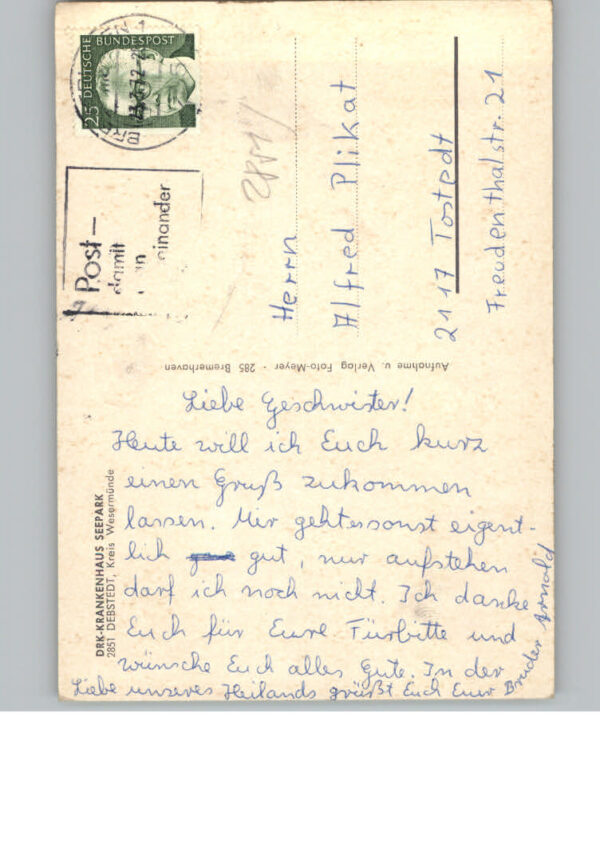 25 DEUTSCHE
BUNDESPOST
Post—
damit
einander
Herrn
Alfred Plikat
2117 Tostedt
Freudenthalstr. 21
Aufnahme u. Verlag Foto-Meyer · 285 Bremerhaven
DRK-KRANKENHAUS SEEPARK
2851 DEBSTEDT, Kreis Wesermünde
Liebe Geschwister!
Heute will ich Euch kurz
einen Gruß zukommen
lassen. Mir geht es sonst eigent-
lich gut, nur aufstehen
darf ich noch nicht. Ich danke
Euch für Eure Fürbitte und
wünsche Euch alles Gute. In der
Liebe unseres Heilands grüßt Euch Euer Bruder Arnold